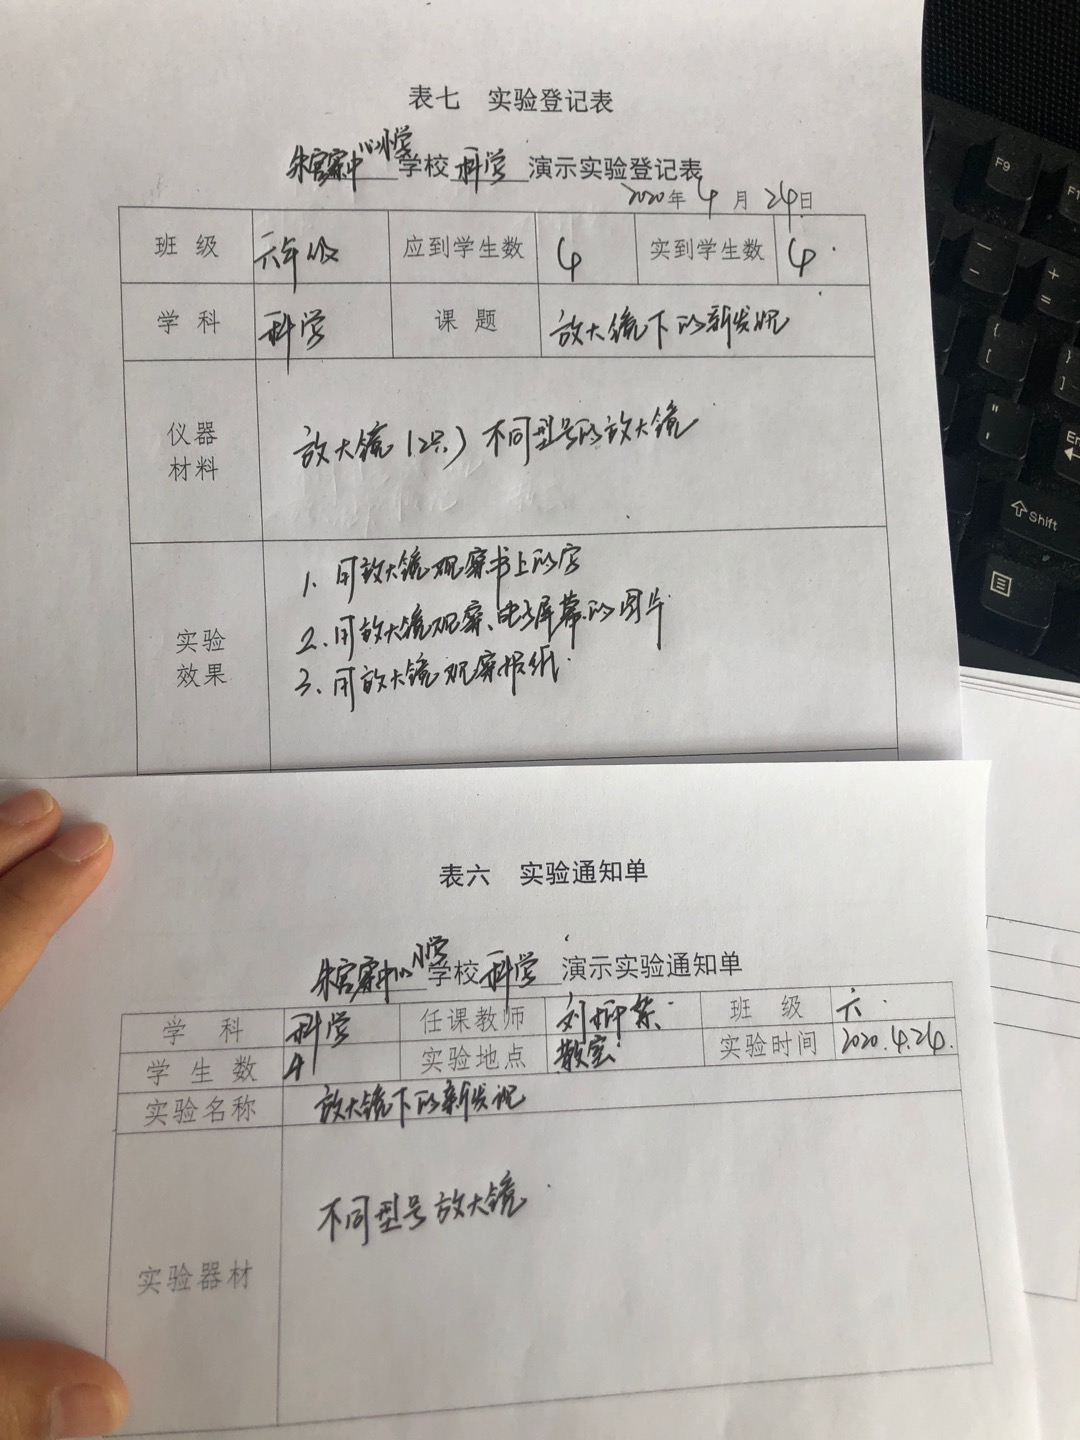 表七 实验登记表
朱官寨中心小学学校 科学 演示实验登记表
2020年 4 月 24日
班 级 六年级 应到学生数 4 实到学生数 4
学 科 科学 课 题 放大镜下的新发现
仪器
材料
放大镜(2只) 不同型号的放大镜
1、用放大镜观察书上的字
2、用放大镜观察、电子屏幕的图片
3、用放大镜观察报纸.
实验
效果
表六 实验通知单
朱官寨中心小学学校 科学 演示实验通知单
学 科 科学 任课教师 刘 班 级 六
学 生 数 4 实验地点 教室 实验时间 2020.4.24.
实验名称 放大镜下的新发现
不同型号放大镜
实验器材
F9
F1
Shift